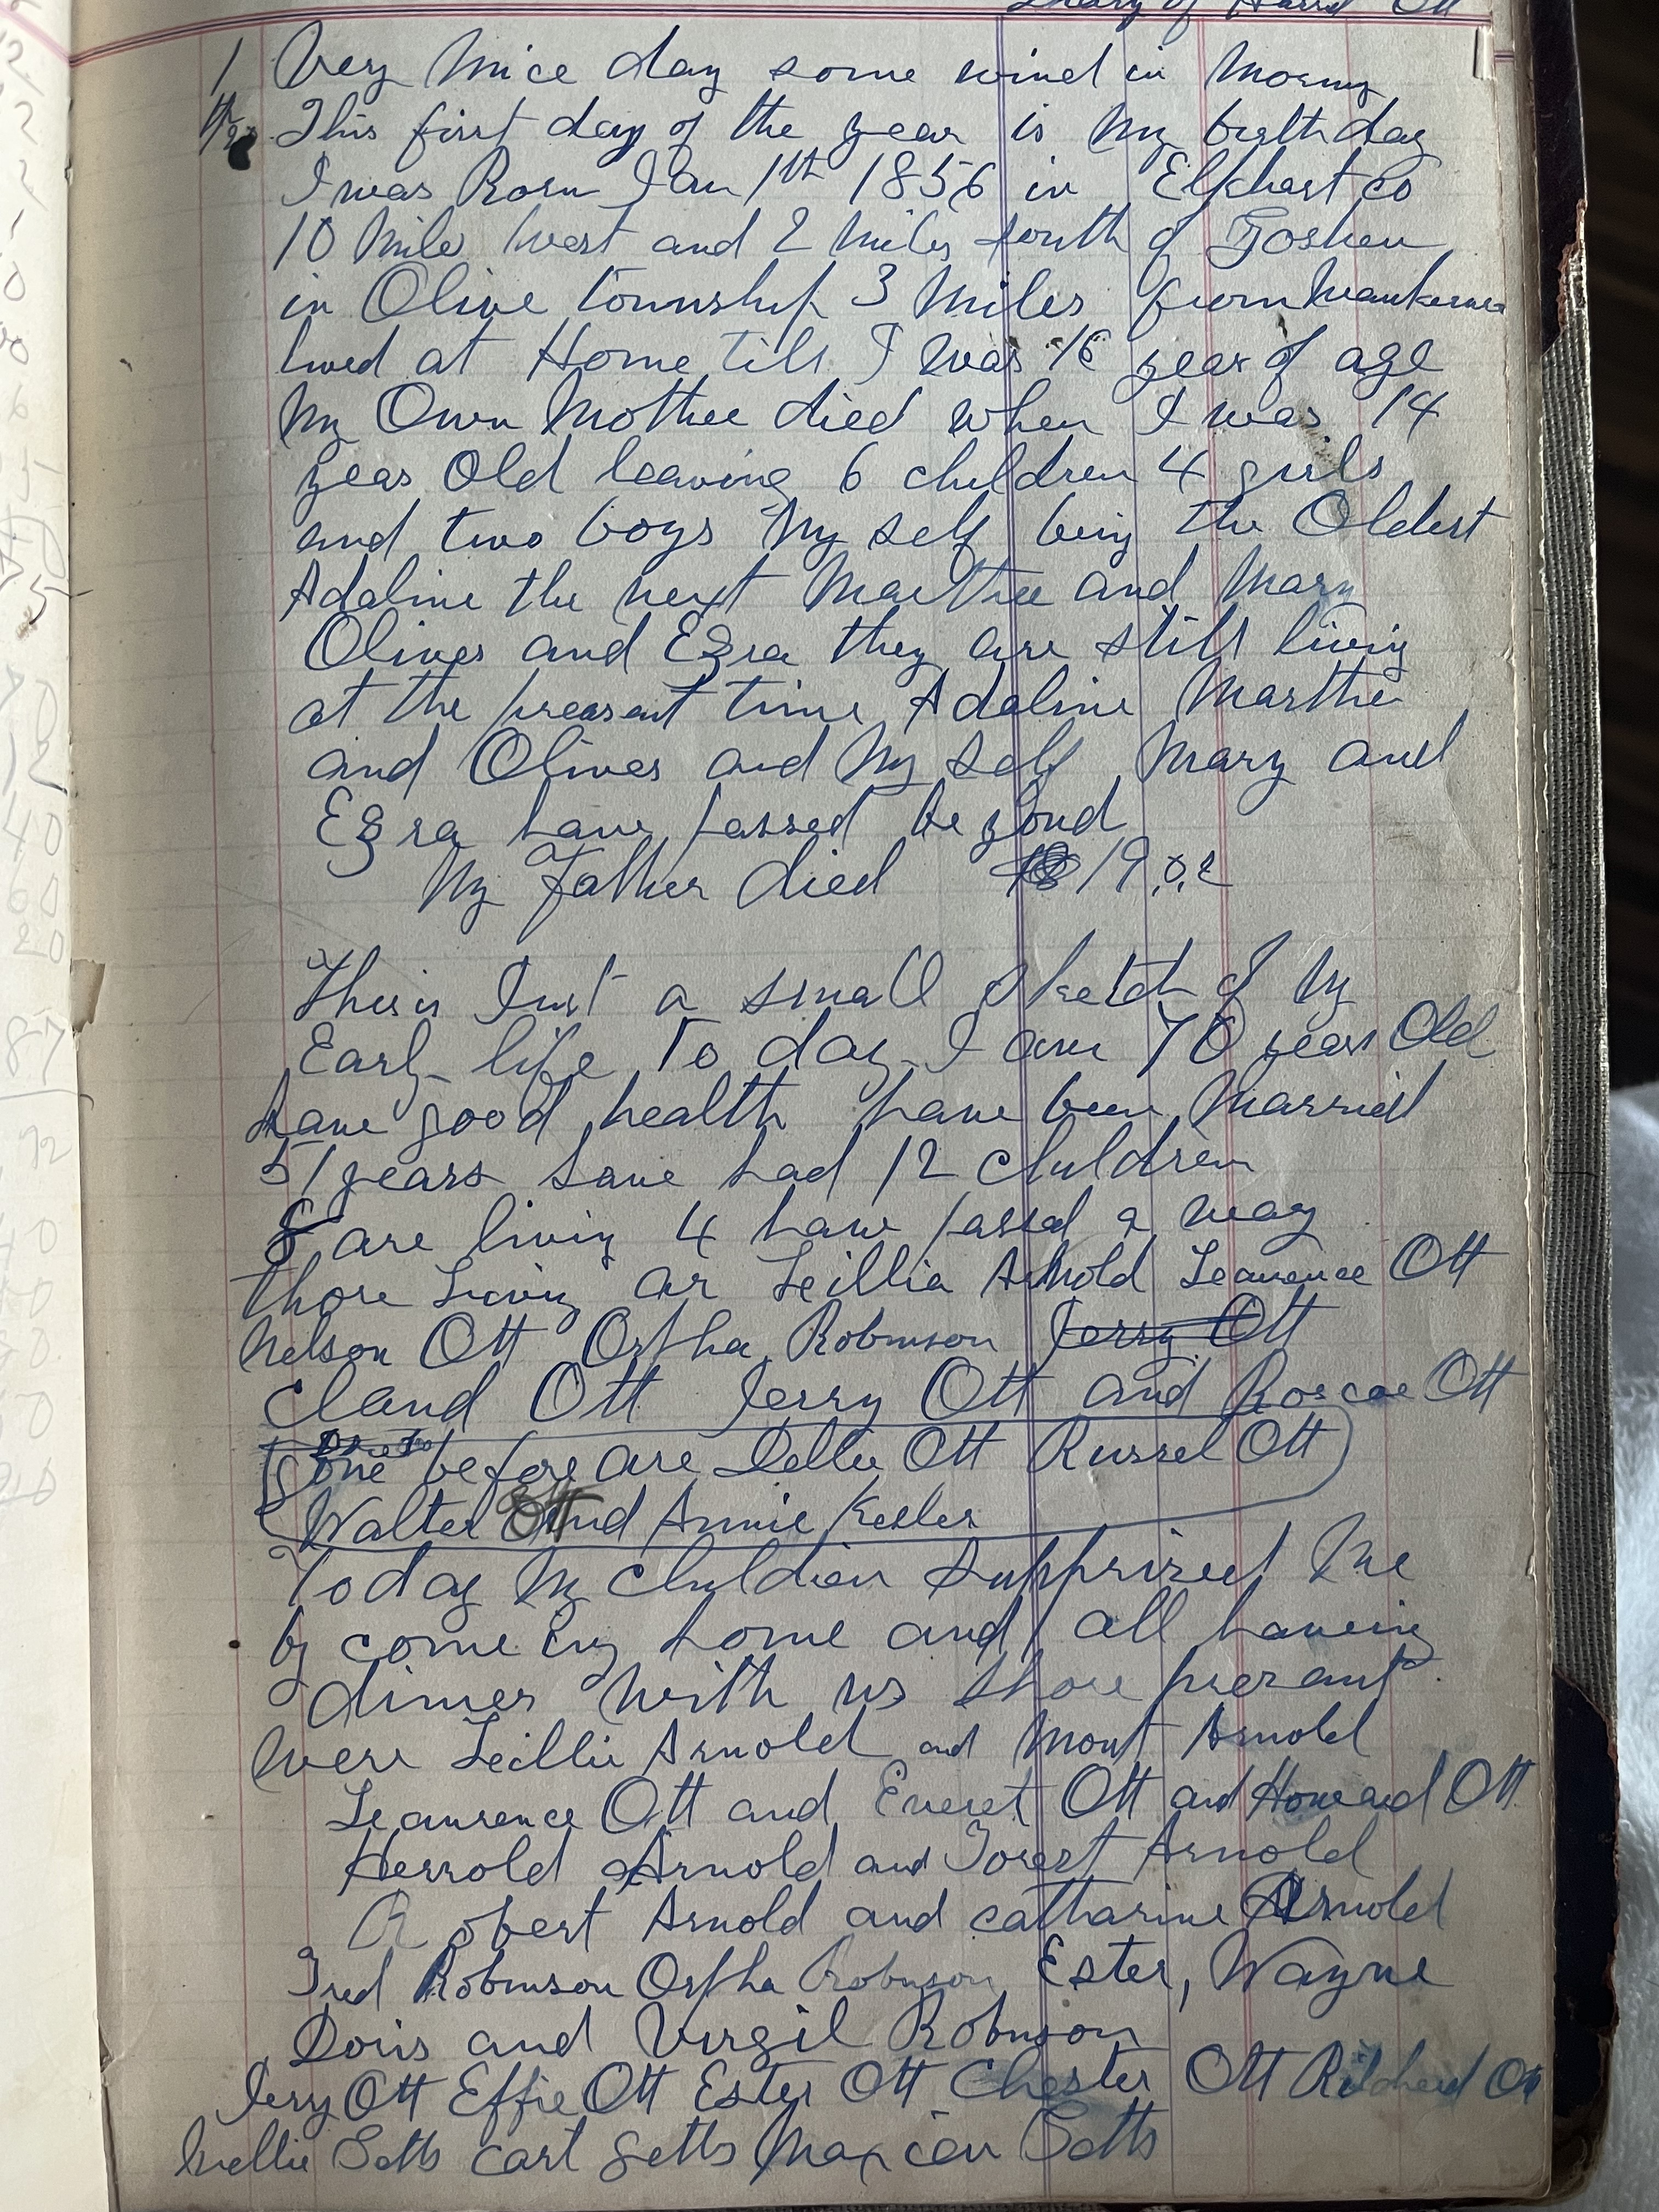 Diary of Ott
1 Very Nice day some wind in Morny
This first day of the year is My birth day
I was Born Jan 1th 1856 in Elkhart Co
10 Mile West and 2 Miles South of Goshen
in Olive township 3 Miles from
lived at Home till I was 16 year of age
My Own Mother died when I was 14
year Old leaving 6 children 4 girls
and two boys My self being the Oldest
Adaline the next Marthe and Mary
Oliver and Ezra they are still living
at the preasent time Adaline Marthe
and Oliver and My self Mary and
Ezra have passed be yond
My Father died 1902
This is Just a small Sketch of My
Early life To day I am 70 years Old
have good health have been Married
51 years have had 12 Children
8 are living 4 have passed a way
those Living ar Leillia Arnold Leawrence Ott
Nelson Ott Orpha Robinson Jerry Ott
Claud Ott Jerry Ott and Roscoe Ott
gone before are Dellie Ott Russel Ott
Walter Ott and Annie Kesler
Today My Children Supprized Me
by come ing home and all haveing
dinner with us those preasant
were Leillie Arnold and Mont Arnold
Leawrence Ott and Everet Ott and Howard Ott
Herrold Arnold and Forest Arnold
Robert Arnold and catharine Arnold
Fred Robinson Orpha Robinson Ester, Wayne
Doris and Virgil Robinson
Jery Ott Effie Ott Ester Ott Chester Ott Richerd Ott
Nellie Setts Carl Setts Maxien Setts